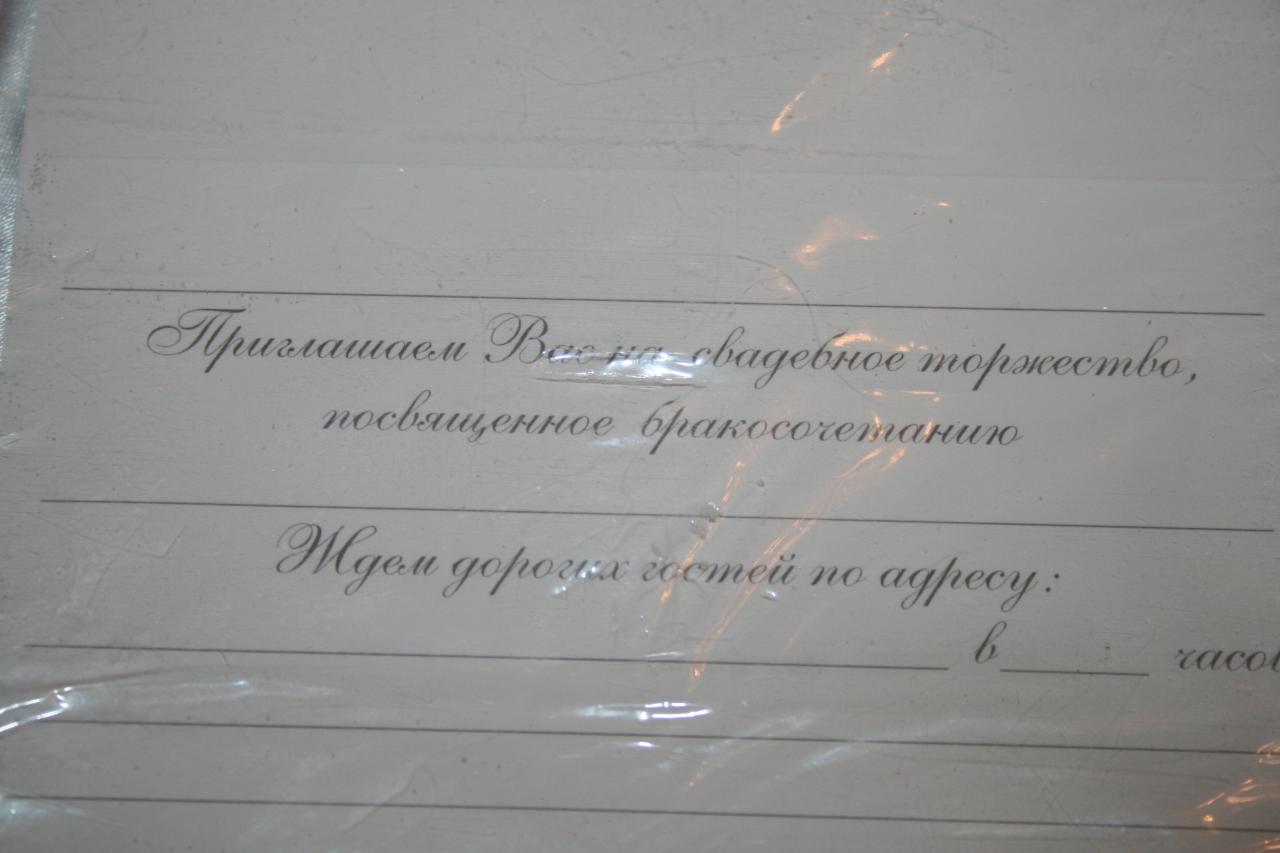 Приглашаем Вас на свадебное торжество,
посвященное бракосочетанию
Ждем дорогих гостей по адресу:
в часов